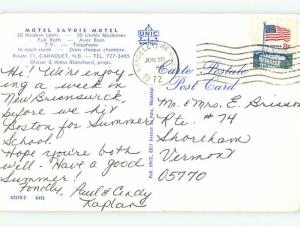 MOTEL SAVOIE MOTEL
30 Modern Units - 30 Unités Modernes
Full Bath - Avec Bain
T.V. - Telephone
In each room - Dans chaque chambre
Route 11, CARAQUET, N.B. - TEL. 727-3485
Olivier & Alma Blanchard, props.
Hi! We're enjoy-
ing a week in
New Brunswick
before we hit
Boston for Summer
School!
Hope you're both
well - Have a good
Summer!
Fondly, Paul & Cindy
Kaplan
UNIC
1972
8c
Carte Postale
Post Card
Mr. & Mrs. E. Brisson
Rte. #74
Shoreham
Vermont
05770